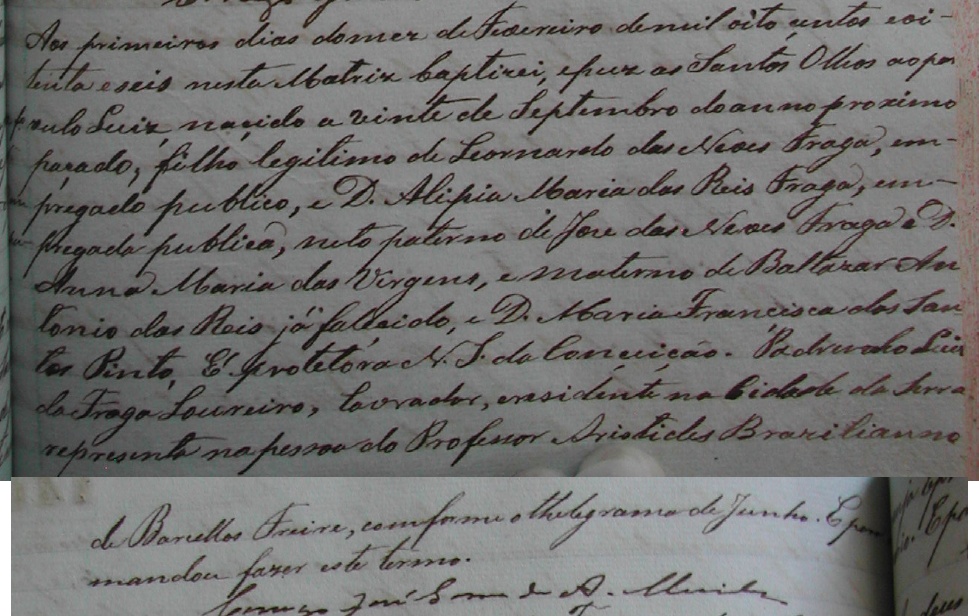 Aos primeiros dias do mez de Fevereiro de mil oito centos e oi-
tenta e seis nesta Matriz baptizei, e puz os Santos Olhos ao par
vulo Luiz nacido a vinte de Septembro do anno proximo
passado, filho legitimo de Leornardo das Neves Fraga, em-
pregado publico, e D. Alipia Maria das Reis Fraga, em-
pregada publica, neto paterno de Jose das Neves Fraga e D.
Anna Maria das Virgens, e materno de Baltazar An
tonio dos Reis já falecido, e D. Maria Francisca dos San
tos Pinto. E' protetôra N. S. da Conceição. Padrinho Luiz
da Fraga Loureiro, lavrador, e residente na Cidade da Serra
representa na pessoa do Professor Aristides Brazilianno
de Barcellos Freire, comforme o thelegrama de Junho. E para
mandou fazer este termo.
José de A.